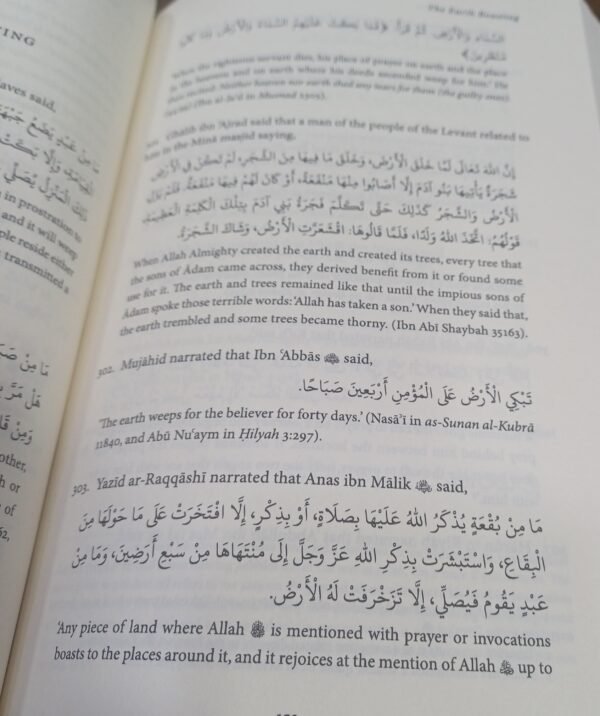 ING
aves said,
ذَلِكَ الْمَنْزِلُ يُصَلِّي
in prostration to
and it will weep
ple reside either
transmitted a
مَا مِنْ
هَلْ مَرَّ
other,
h or
of
The Earth Boasting
when the righteous servant dies, his place of prayer on earth and the place
in the heavens and on earth where his deeds ascended weep for him.' He
then recited: Neither heaven nor earth shed any tears for them (the guilty ones)
Ghālib ibn ʿAjrad said that a man of the people of the Levant related to
him in the Minā masjid saying,
إِنَّ اللهَ تَعَالَى لَمَّا خَلَقَ الْأَرْضَ، وَخَلَقَ مَا فِيهَا مِنَ الشَّجَرِ، لَمْ تَكُنْ فِي الْأَرْضِ
شَجَرَةٌ يَأْتِيهَا بَنُو آدَمَ إِلَّا أَصَابُوا مِنْهَا مَنْفَعَةً، أَوْ كَانَ لَهُمْ فِيهَا مَنْفَعَةٌ، فَلَمْ تَزَلِ
الْأَرْضُ وَالشَّجَرُ كَذَلِكَ حَتَّى تَكَلَّمَ فَجَرَةُ بَنِي آدَمَ بِتِلْكَ الْكَلِمَةِ الْعَظِيمَةِ
قَوْلُهُمْ: اتَّخَذَ اللهُ وَلَدًا، فَلَمَّا قَالُوهَا: اقْشَعَرَّتِ الْأَرْضُ، وَشَاكَ الشَّجَرَةُ.
'When Allah Almighty created the earth and created its trees, every tree that
the sons of Ādam came across, they derived benefit from it or found some
use for it. The earth and trees remained like that until the impious sons of
Ādam spoke those terrible words: 'Allah has taken a son.' When they said that,
the earth trembled and some trees became thorny. (Ibn Abī Shaybah 35163).
302. Mujāhid narrated that Ibn ʿAbbās ﷺ said,
تَبْكِي الْأَرْضُ عَلَى الْمُؤْمِنِ أَرْبَعِينَ صَبَاحًا.
'The earth weeps for the believer for forty days.' (Nasāʾī in as-Sunan al-Kubrā
11840, and Abū Nuʿaym in Ḥilyah 3:297).
303. Yazīd ar-Raqqāshī narrated that Anas ibn Mālik said,
مَا مِنْ بُقْعَةٍ يُذْكَرُ اللهُ عَلَيْهَا بِصَلَاةٍ، أَوْ بِذِكْرٍ، إِلَّا افْتَخَرَتْ عَلَى مَا حَوْلَهَا مِنَ
الْبِقَاعِ، وَاسْتَبْشَرَتْ بِذِكْرِ اللهِ عَزَّ وَجَلَّ إِلَى مُنْتَهَاهَا مِنْ سَبْعِ أَرَضِينَ، وَمَا مِنْ
عَبْدٍ يَقُومُ فَيُصَلِّي، إِلَّا تَزَخْرَفَتْ لَهُ الْأَرْضُ.
'Any piece of land where Allah is mentioned with prayer or invocations
boasts to the places around it, and it rejoices at the mention of Allah up to